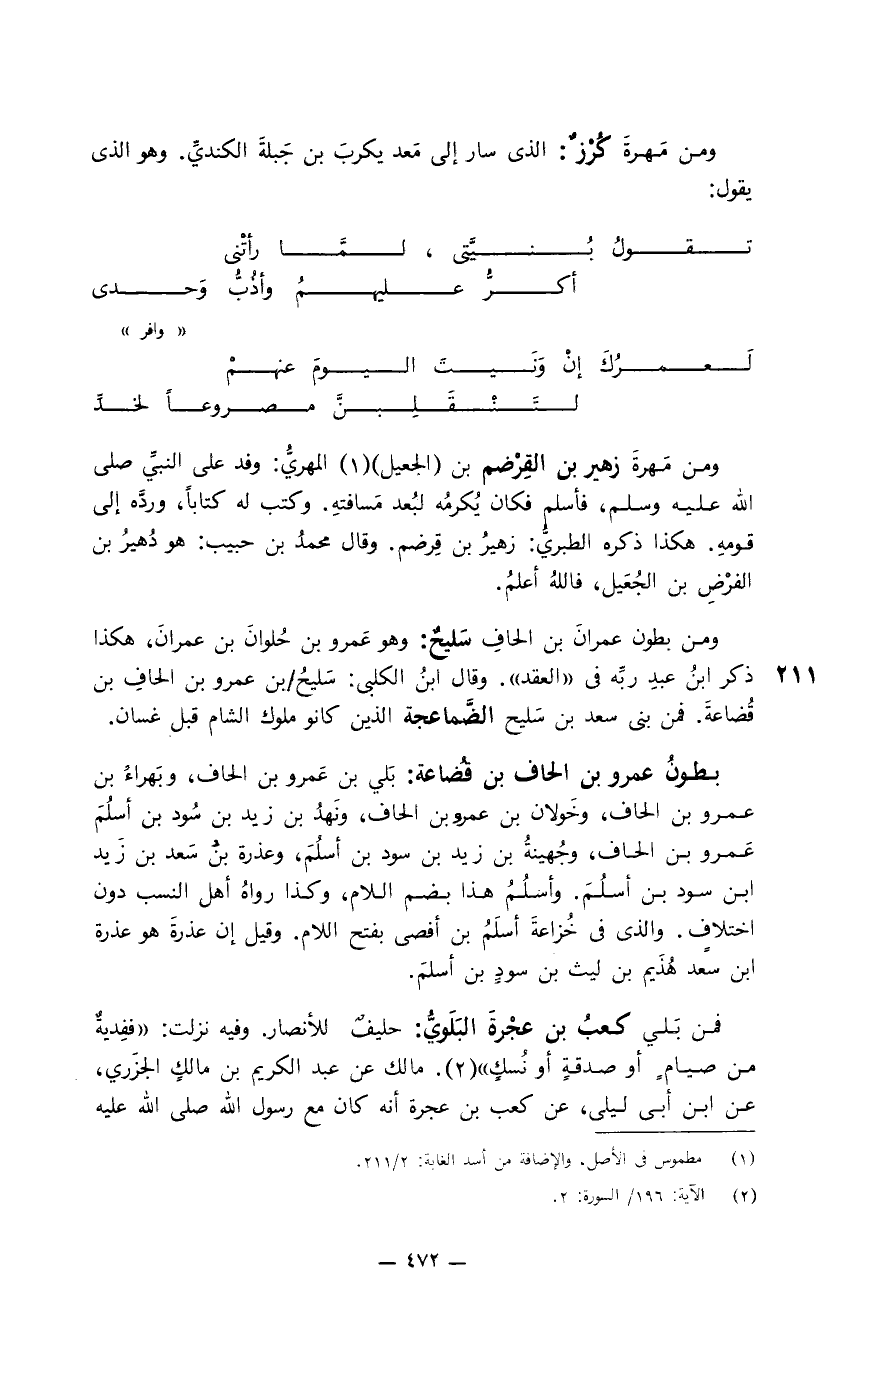 ومن مَهرةَ كُرْزٌ: الذى سار إلى مَعد يكربَ بن جَبلةَ الكنديِّ. وهو الذى
يقول:
تقولُ بُنيَّتى ، لمَّا رأتْنى
أكرُّ عليهمُ وأذُبُّ وَحدى
« وافر »
لَعمرُكَ إنْ وَنَيتَ اليومَ عنهمْ
لتَنْقَلِبنَّ مصروعاً لخدِّ
ومن مَهرةَ زهير بن القِرْضم بن (الجعيل)(١) المهريُّ: وفد على النبيِّ صلى
الله عليه وسلم، فأسلم فكان يُكرمُه لبُعد مَسافتهِ. وكتب له كتاباً، وردَّه إلى
قومهِ. هكذا ذكره الطبريُّ: زهيرُ بن قِرضم. وقال محمدُ بن حبيب: هو ذُهيرُ بن
الفرْضِ بن الجُعَيل، فاللهُ أعلمُ.
ومن بطون عمرانَ بن الحافِ سَليحٌ: وهو عَمرو بن حُلوانَ بن عمرانَ، هكذا
٢١١ ذكر ابنُ عبدِ ربِّه فى «العقد». وقال ابنُ الكلبى: سَليحُ/بن عمرو بن الحافِ بن
قُضاعةَ. فمن بنى سعد بن سَليح الضَّماعجة الذين كانو ملوك الشام قبل غسان.
بطونُ عمرو بن الحاف بن قُضاعة: بَلي بن عَمرو بن الحاف، وبَهراءُ بن
عمرو بن الحاف، وخَولان بن عمروبن الحاف، ونَهدُ بن زيد بن سُود بن أسلُمَ
عَمرو بن الحاف، وجُهينةُ بن زيد بن سود بن أسلُمَ، وعذرة بنُ سَعد بن زَيد
ابن سود بن أسلُمَ. وأسلُمُ هذا بضم اللام، وكذا رواهُ أهل النسب دون
اختلافٍ. والذى فى خُزاعةَ أسلَمُ بن أفصى بفتح اللام. وقيل إن عذرةَ هو عذرة
ابن سعد هُذَيم بن ليث بن سودٍ بن أسلمَ.
فمن بَلي كعبُ بن عجْرةَ البَلَويُّ: حليفٌ للأنصار. وفيه نزلت: «ففِديةٌ
من صيامٍ أو صدقةٍ أو نُسكٍ»(٢). مالك عن عبد الكريم بن مالكٍ الجزَري،
عن ابن أبى ليلى، عن كعب بن عجرة أنه كان مع رسول الله صلى الله عليه
(١) مطموس فى الأصل. والإضافة من أسد الغابة: ٢١١/٢.
(٢) الآية: ١٩٦/ السورة: ٢.
— ٤٧٢ —